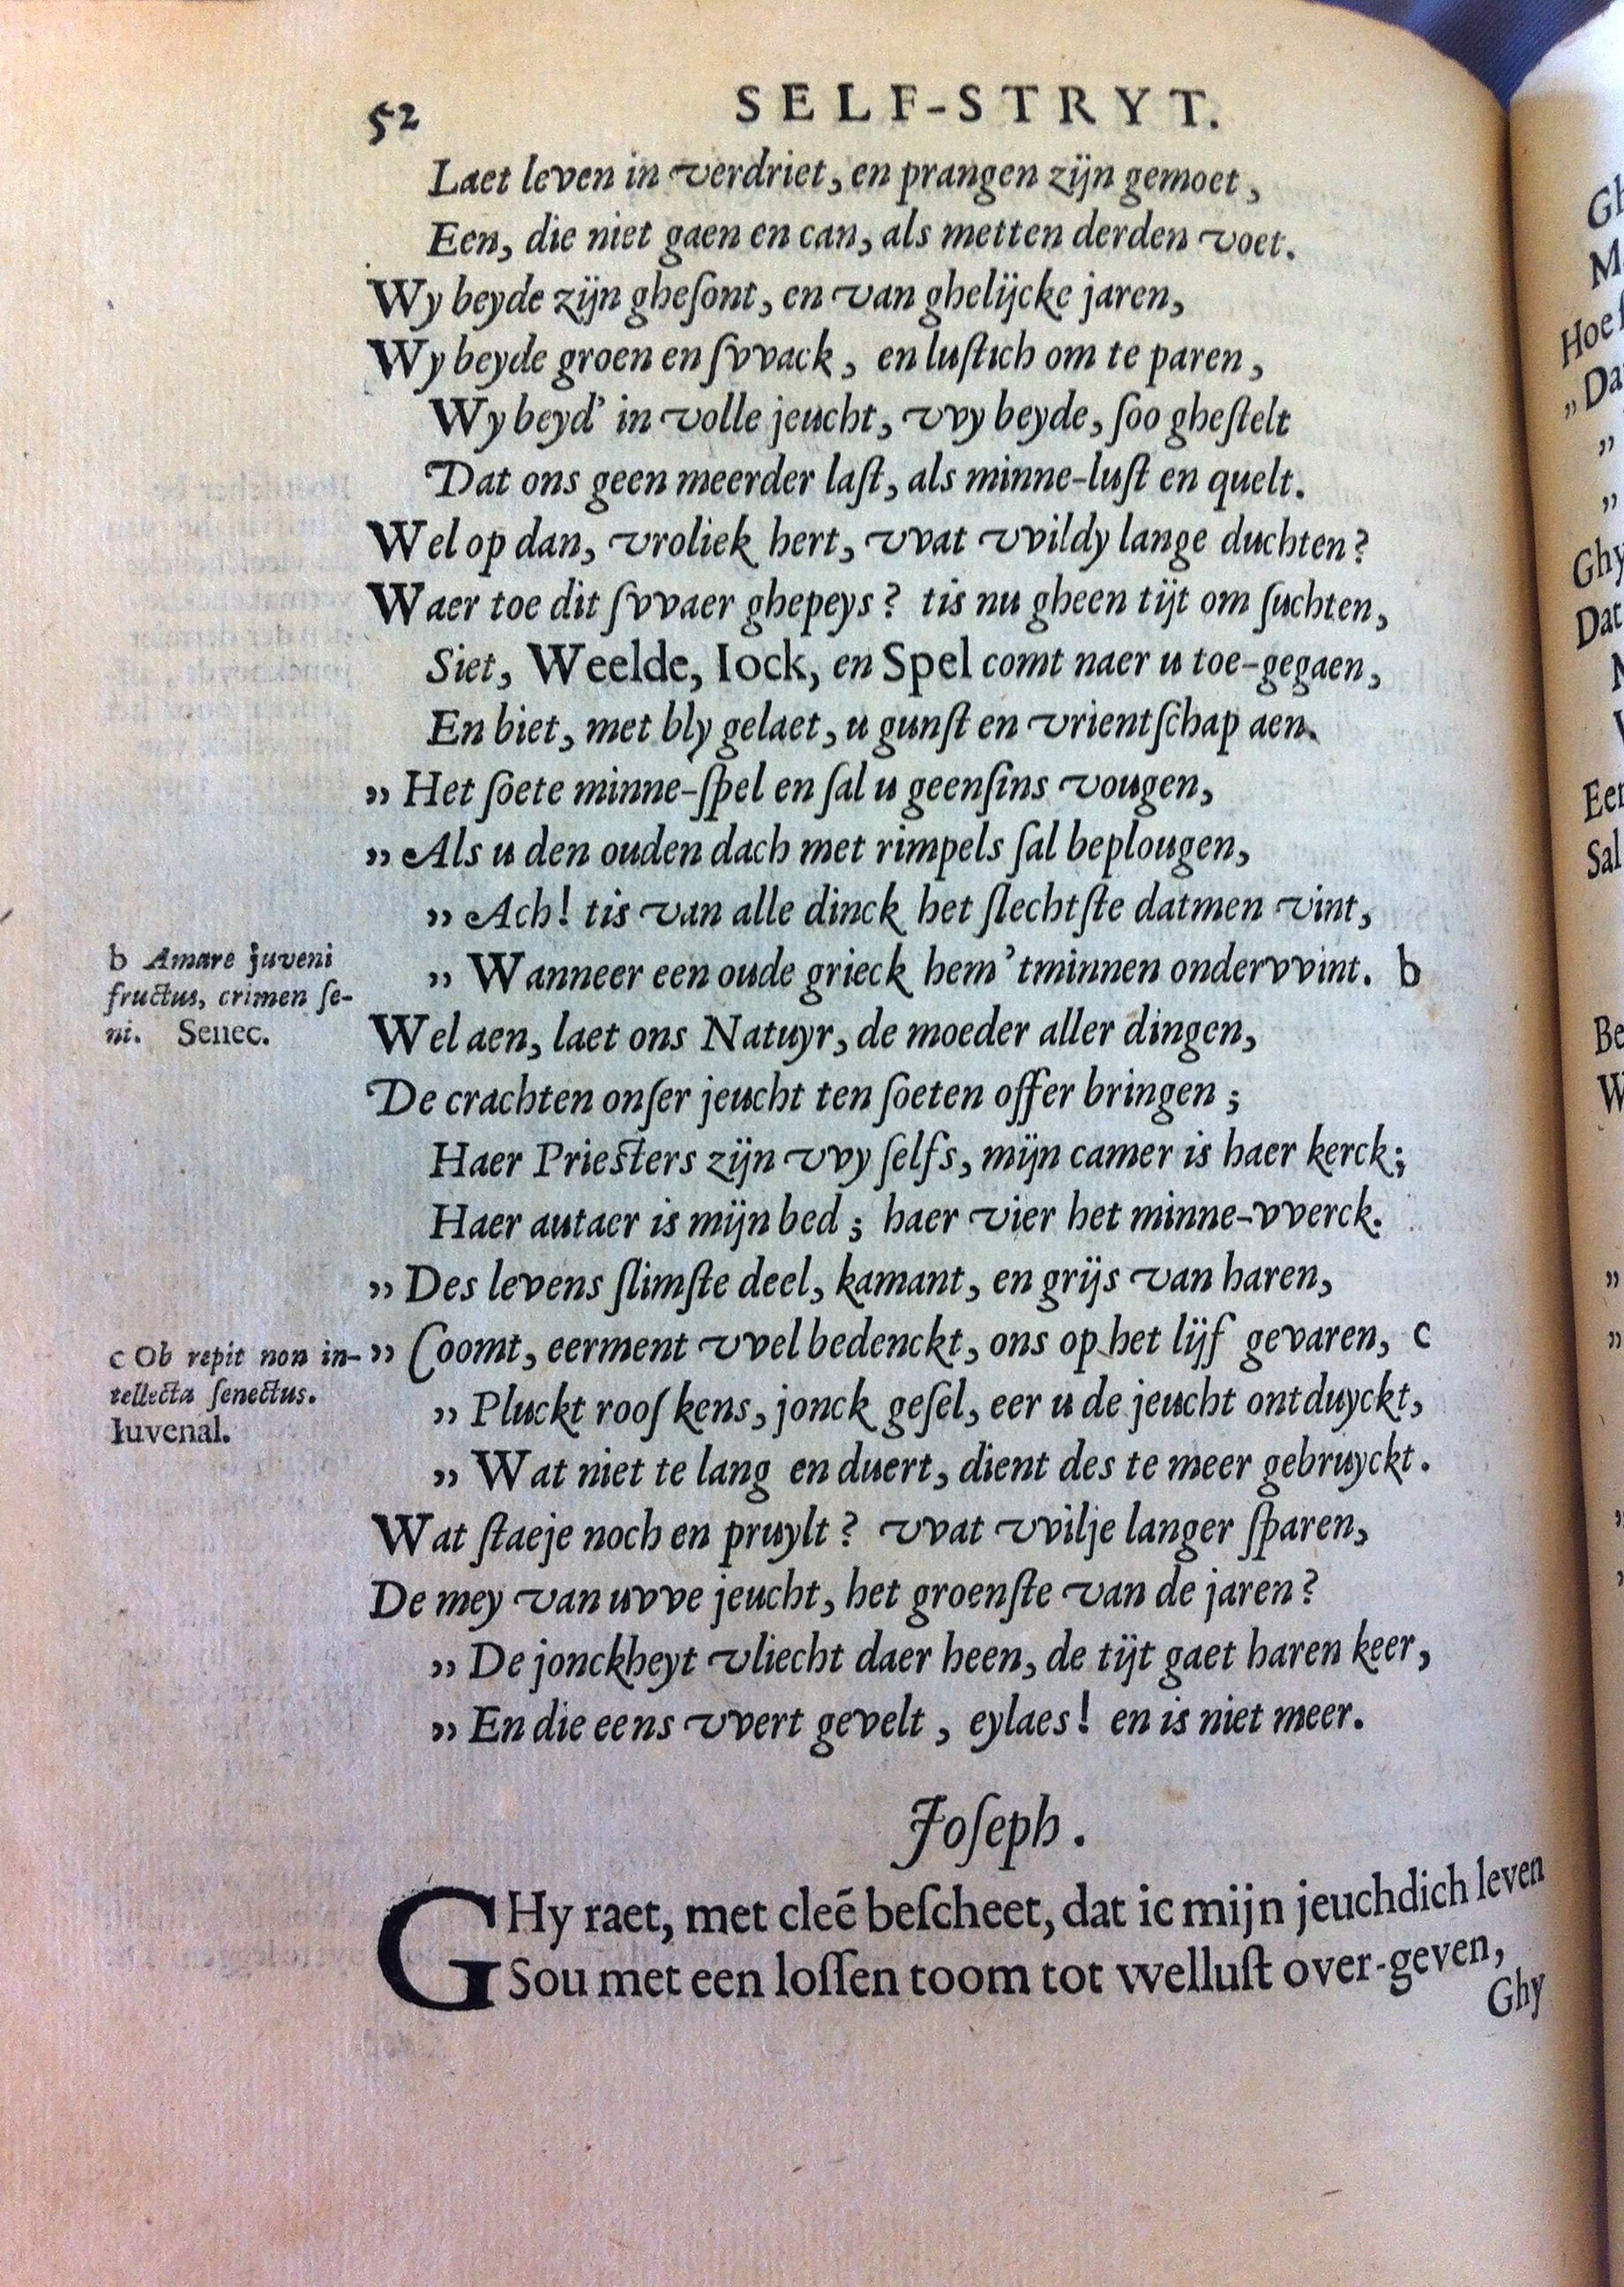 52
SELF-STRYT.
Laet leven in verdriet, en prangen zijn gemoet,
Een, die niet gaen en can, als metten derden voet.
Wy beyde zijn gheſont, en van ghelijcke jaren,
Wy beyde groen en ſvvack, en luſtich om te paren,
Wy beyd' in volle jeucht, vvy beyde, ſoo gheſtelt
Dat ons geen meerder laſt, als minne-luſt en quelt.
Wel op dan, vroliek hert, vvat vvildy lange duchten?
Waer toe dit ſvvaer ghepeys? tis nu gheen tijt om ſuchten,
Siet, Weelde, Iock, en Spel comt naer u toe-gegaen,
En biet, met bly gelaet, u gunſt en vrientſchap aen.
„ Het ſoete minne-ſpel en ſal u geenſins vougen,
„ Als u den ouden dach met rimpels ſal beplougen,
„ Ach! tis van alle dinck het ſlechtſte datmen vint,
„ Wanneer een oude grieck hem 'tminnen ondervvint. b
b Amare juveni
fructus, crimen ſe-
ni. Senec.
Wel aen, laet ons Natuyr, de moeder aller dingen,
De crachten onſer jeucht ten ſoeten offer bringen;
Haer Prieſters zijn vvy ſelfs, mijn camer is haer kerck;
Haer autaer is mijn bed; haer vier het minne-vverck.
„ Des levens ſlimſte deel, kamant, en grijs van haren,
„ Coomt, eerment vvel bedenckt, ons op het lijf gevaren, c
c Ob repit non in-
tellecta ſenectus.
Iuvenal.
„ Pluckt rooſ kens, jonck geſel, eer u de jeucht ontduyckt,
„ Wat niet te lang en duert, dient des te meer gebruyckt.
Wat ſtaeje noch en pruylt? vvat vvilje langer ſparen,
De mey van uvve jeucht, het groenſte van de jaren?
„ De jonckheyt vliecht daer heen, de tijt gaet haren keer,
„ En die eens vvert gevelt, eylaes! en is niet meer.
Joſeph.
GHy raet, met cleē beſcheet, dat ic mijn jeuchdich leven
Sou met een loſſen toom tot welluſt over-geven,
Ghy